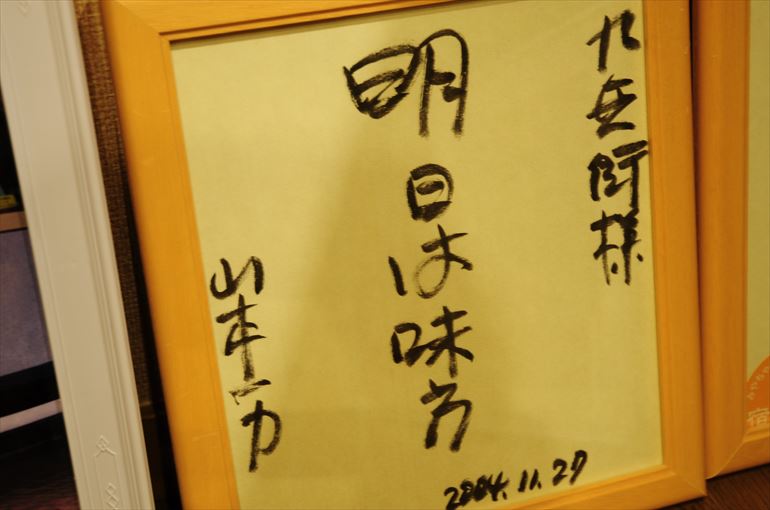 九兵衛様
明日は味方
山本一力
2004.11.27
宿